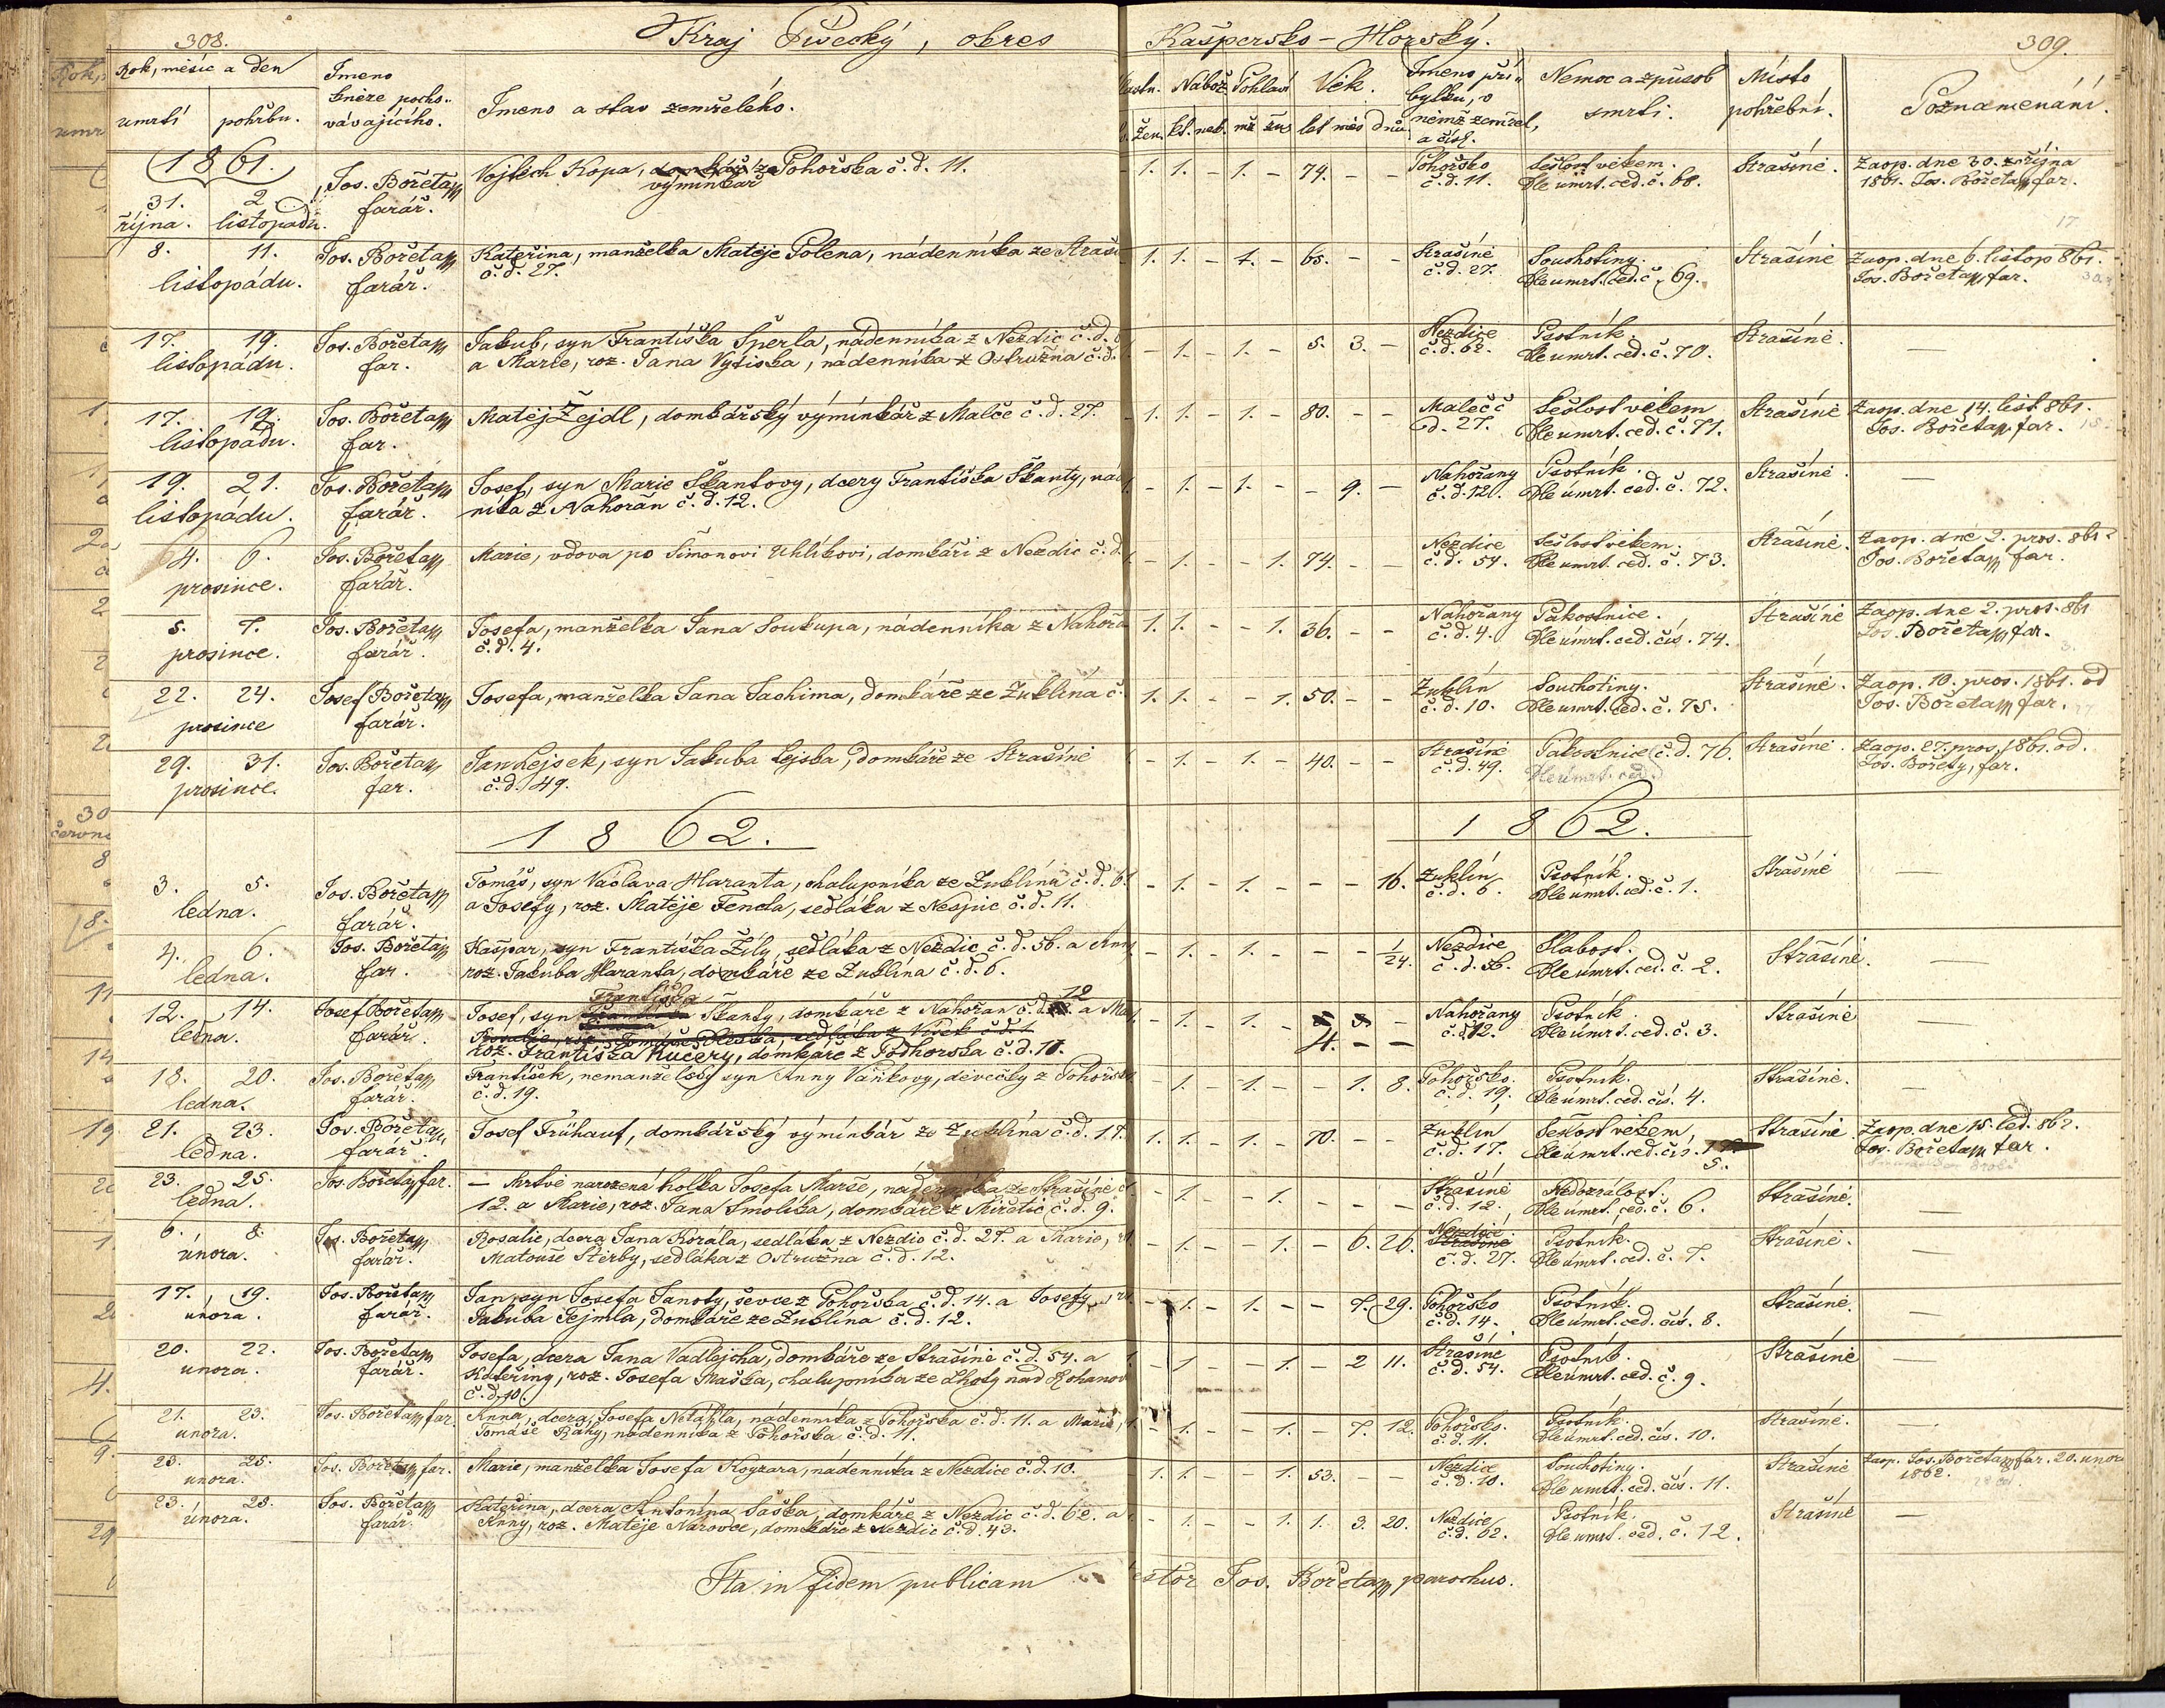 308.
Kraj Písecký, okres
Kašpersko-Horský.
309.
Rok, měsíc a den
úmrtí
pohřbu.
Jmeno
kněze pocho-
vávajícího.
Jmeno a stav zemřelého.
Nábož.
Pohlaví
Věk.
žen.
kt.
nek.
mž
žen
let
měs
dnů
Jmeno pří-
bytku, v
němž zemřel,
a čísl.
Nemoc a způsob
smrti.
Místo
pohřební.
Poznamenání.
1861.
31. 2.
října. listopadu.
Jos. Bořeta
farář.
Vojtěch Kopa, domkář z Pohořska č.d. 11.
výminkář
1. 1. - 1. - 74. - -
Pohořsko
č.d. 11.
Sešlost věkem.
Dle úmrt. ced. č. 68.
Strašíně.
Zaop. dne 30. října
1861. Jos. Bořeta far.
17
8. 11.
listopádu.
Jos. Bořeta
farář.
Kateřina, manželka Matěje Polena, nádenníka ze Straš
č.d. 27.
1. 1. - 1. - 65. - -
Strašíně
č.d. 27.
Souchotiny.
Dle umrt. ced. č. 69.
Strašíně
Zaop. dne 6. listop 861.
Jos. Bořeta far.
17. 19.
listopádu.
Jos. Bořeta
far.
Jakub, syn Františka Šperla, nádenníka z Nezdic č.d.
a Marie, roz. Jana Vytiska, nádenníka z Ostružna č.d.
- 1. - 1. - 5. 3. -
Nezdice
č.d. 62.
Psotník.
Dle umrt. ced. č. 70.
Strašíně.
—
17. 19.
listopádu.
Jos. Bořeta
far.
Matěj Žejdl, domkářský výminkář z Malče č.d. 27.
1. 1. - 1. - 80. - -
Maleč č
d. 27.
Sešlost věkem
Dle umrt. ced. č. 71.
Strašíně
Zaop. dne 14. list. 861.
Jos. Bořeta far.
19. 21.
listopádu.
Jos. Bořeta
farář.
Josef, syn Marie Škantovy, dcery Františka Škanty, nád
níka z Nahořan č.d. 12.
- 1. - 1. - - 9. -
Nahořany
č.d. 12.
Psotník.
Dle úmrt. ced. č. 72.
Strašíně.
—
4. 6.
prosince.
Jos. Bořeta
farář.
Marie, vdova po Šimonovi Uhlíkovi, domkáři z Nezdic č.d.
- 1. - - 1. 74. - -
Nezdice
č.d. 54.
Sešlost věkem.
Dle umrt. ced. č. 73.
Strašíně.
Zaop. dne 2. pros. 861.
Jos. Bořeta far.
5. 7.
prosince.
Jos. Bořeta
farář.
Josefa, manželka Jana Soukupa, nádenníka z Nahoř
č.d. 4.
1. 1. - - 1. 36. - -
Nahořany
č.d. 4.
Pakostnice.
Dle úmrt. ced. čís. 74.
Strašíně
Zaop. dne 2. pros. 861
Jos. Bořeta far.
22. 24.
prosince
Josef Bořeta
farář.
Josefa, manželka Jana Jachima, domkáře ze Zuklína č.
1. 1. - - 1. 50. - -
Zuklín
č.d. 10.
Souchotiny.
Dle umrt. ced. č. 75.
Strašíně.
Zaop. 10. pros. 1861. od
Jos. Bořeta far.
29. 31.
prosince.
Jos. Bořeta
far.
Jan Lejsek, syn Jakuba Lejska, domkáře ze Strašíně
č.d. 49.
- 1. - 1. - 40. - -
Strašíně
č.d. 49.
Pakostnice č.d. 76.
Dle úmrt. ced.
Strašíně.
Zaop. 27. pros. 1861. od.
Jos. Bořety, far.
1862.
1862.
3. 5.
ledna.
Jos. Bořeta
farář.
Tomáš, syn Václava Haranta, chalupníka ze Zuklína č.d. 6.
a Josefy, roz. Matěje Fencla, sedláka z Nespic č.d. 11.
- 1. - 1. - - - 16.
Zuklín
č.d. 6.
Psotník.
Dle úmrt. ced. č. 1.
Strašíně
—
4. 6.
ledna.
Jos. Bořeta
far.
Kašpar, syn Františka Žíly, sedláka z Nezdic č.d. 56. a Ann
roz. Jakuba Haranta, domkáře ze Zuklína č.d. 6.
- 1. - 1. - - - 1/24.
Nezdice
č.d. 56.
Slabost.
Dle úmrt. ced. č. 2.
Strašíně.
—
12. 14.
ledna.
Josef Bořeta
farář.
Františka
Josef, syn Škanty, domkáře z Nahořan č.d. 12 a Ma
roz. Františka Kučery, domkáře z Podhorska č.d. 17.
- 1. - 1. - 4. - -
Nahořany
č.d. 12.
Psotník.
Dle úmrt. ced. č. 3.
Strašíně
—
18. 20.
ledna.
Jos. Bořeta
farář.
František, nemanželský syn Anny Vaňkovy, děvečky z Pohořsk
č.d. 19.
- 1. - 1. - - 1. 8.
Pohořsko.
č.d. 19.
Psotník.
Dle úmrt. ced. čís. 4.
Strašíně.
—
21. 23.
ledna.
Jos. Bořeta
farář.
Josef Frühauf, domkářský výminkář ze Zuklína č.d. 17.
1. 1. - 1. - 70. - -
Zuklín
č.d. 17.
Sešlost věkem
Dle úmrt. ced. čís.
5.
Strašíně.
Zaop. dne 15. led. 862.
Jos. Bořeta far.
23. 25.
ledna.
Jos. Bořeta far.
— Mrtvě narozená holka Josefa Marše, nádenníka ze Strašíně č
12. a Marie, roz. Jana Smolíka, domkáře z Miřetic č.d. 9.
- 1. - - 1. - - -
Strašíně
č.d. 12.
Nedozrálost.
Dle úmrt. ced. č. 6.
Strašíně.
—
6. 8.
února.
Jos. Bořeta
farář.
Rosalie, dcera Jana Korála, sedláka z Nezdic č.d. 27. a Marie,
Matouše Štěrby, sedláka z Ostružna č.d. 12.
- 1. - - 1. - 6. 26.
Nezdice
Strašíně
č.d. 27.
Psotník.
Dle úmrt. ced. č. 7.
Strašíně.
—
17. 19.
února.
Jos. Bořeta
farář.
Jan, syn Josefa Janoty, ševce z Pohořska č.d. 14. a Josefy,
Jakuba Fejmla, domkáře ze Zuklína č.d. 12.
- 1. - 1. - - 7. 29.
Pohořsko
č.d. 14.
Psotník.
Dle úmrt. ced. čís. 8.
Strašíně.
—
20. 22.
února.
Jos. Bořeta
farář.
Josefa, dcera Jana Vadlejcha, domkáře ze Strašíně č.d. 54. a
Kateřiny, roz. Josefa Maška, chalupníka ze Lhoty nad Rohanov
č.d. 10.
- 1 - - 1. - 2 11.
Strašíně
č.d. 54.
Psotník.
Dle úmrt. ced. č. 9.
Strašíně
—
21. 23.
února.
Jos. Bořeta far.
Anna, dcera Josefa Netáhla, nádenníka z Pohořska č.d. 11. a Marie,
Tomáše Ráhy, nádenníka z Pohořska č.d. 11.
- 1. - - 1. - 7. 12.
Pohořsko.
č.d. 11.
Psotník.
Dle úmrt. ced. čís. 10.
Strašíně.
23. 25.
unora.
Jos. Bořeta far.
Marie, manželka Josefa Kogzara, nádenníka z Nezdice č.d. 10.
1. 1. - - 1. 53. - -
Nezdice
č.d. 10.
Souchotiny.
Dle umrt. ced. čís. 11.
Strašíně
Zaop. Jos. Bořeta far. 20. unor
1862.
23. 25.
února.
Jos. Bořeta
farář.
Kateřina, dcera Antonína Saska, domkáře z Nezdic č.d. 62. a
Anny, roz. Matěje Narovce, domkáře z Nezdic č.d. 43.
- 1. - - 1. 1. 3. 20.
Nezdice
č.d. 62.
Psotník.
Dle umrt. ced. č. 12.
Strašíně
—
Ita in fidem publicam
estor Jos. Bořeta parochus.